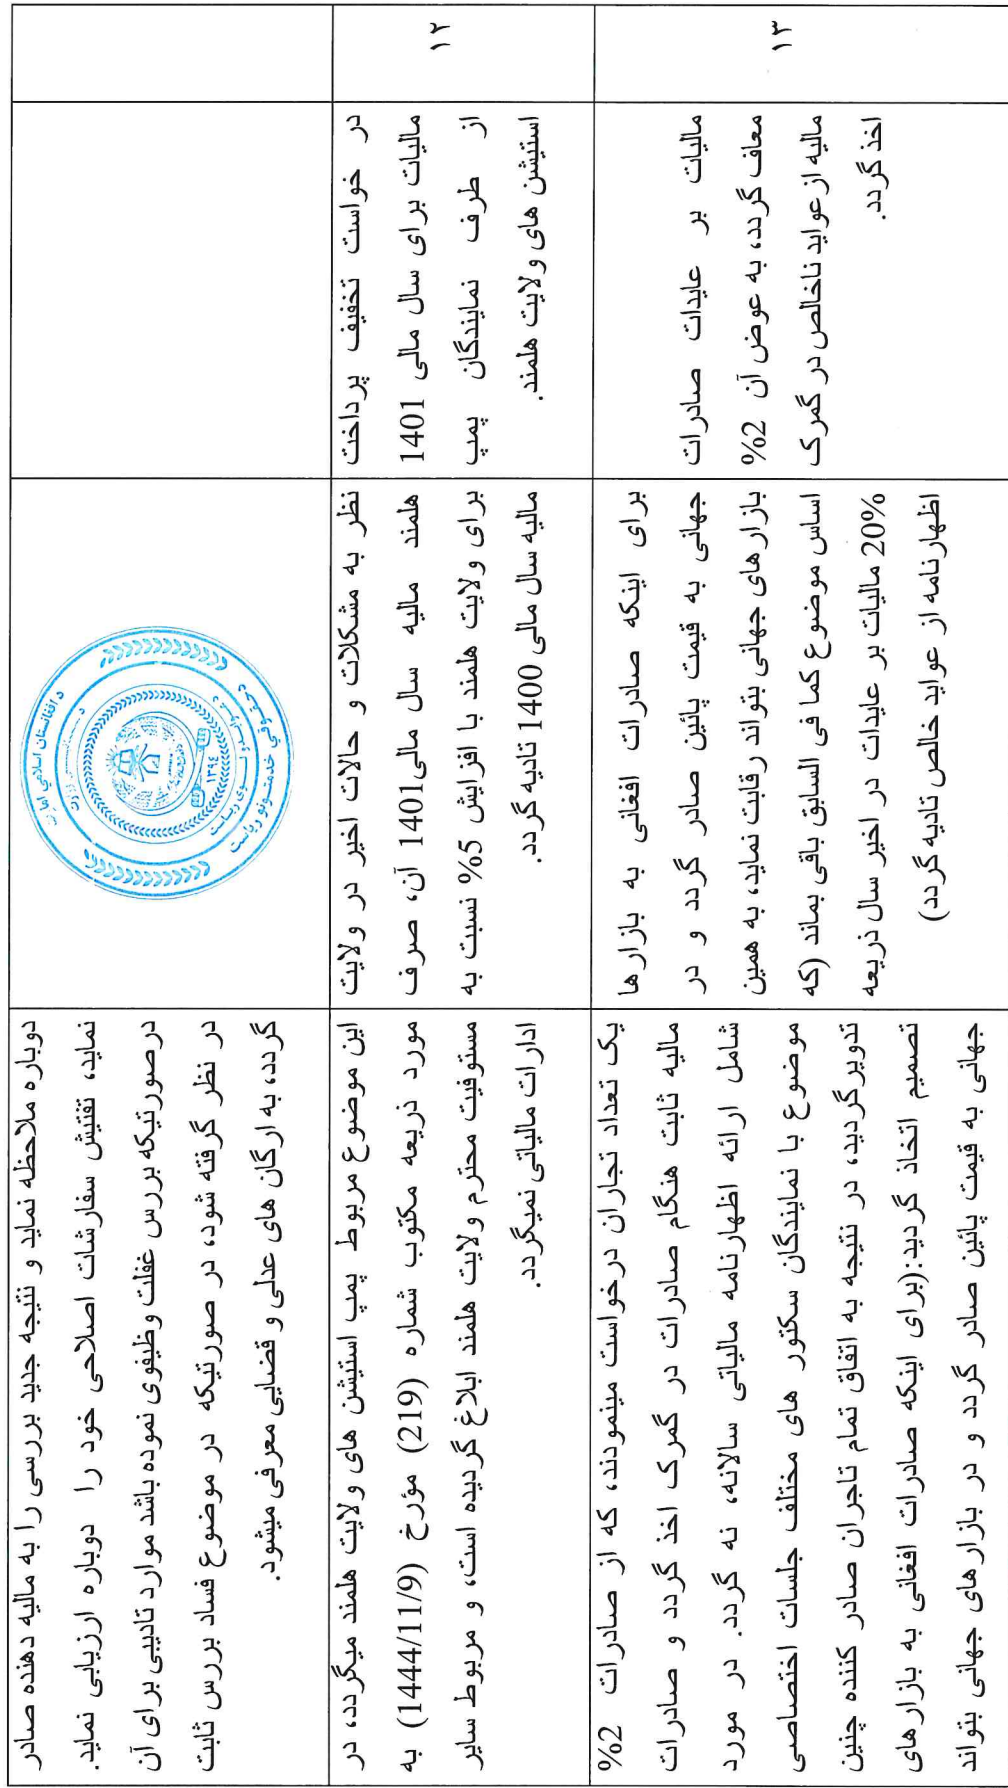 دوباره ملاحظه نماید و نتیجه جدید بررسی را به مالیه دهنده صادر
نماید، تفتیش سفارشات اصلاحی خود را دوباره ارزیابی نماید.
درصورتیکه بررس غفلت وظیفوی نموده باشد موارد تادیبی برای آن
در نظر گرفته شود، در صورتیکه در موضوع فساد بررس ثابت
گردد، به ارگان های عدلی و قضایی معرفی میشود.
د افغانستان اسلامی امارت
خدمتونو ریاست
۱۳۹٤
۱۲
در خواست تخفیف پرداخت
مالیات برای سال مالی 1401
از طرف نمایندگان پمپ
استیشن های ولایت هلمند.
نظر به مشکلات و حالات اخیر در ولایت
هلمند مالیه سال مالی1401 آن، صرف
برای ولایت هلمند با افزایش 5% نسبت به
مالیه سال مالی 1400 تادیه گردد.
این موضوع مربوط پمپ استیشن های ولایت هلمند میگردد، در
مورد ذریعه مکتوب شماره (219) مؤرخ (1444/11/9) به
مستوفیت محترم ولایت هلمند ابلاغ گردیده است، و مربوط سایر
ادارات مالیاتی نمیگردد.
۱۳
مالیات بر عایدات صادرات
معاف گردد، به عوض آن 2%
مالیه از عواید ناخالص در گمرک
اخذ گردد.
برای اینکه صادرات افغانی به بازارها
جهانی به قیمت پائین صادر گردد و در
بازارهای جهانی بتواند رقابت نماید، به همین
اساس موضوع کما فی السابق باقی بماند (که
20% مالیات بر عایدات در اخیر سال ذریعه
اظهارنامه از عواید خالص تادیه گردد)
یک تعداد تجاران درخواست مینمودند، که از صادرات 2%
مالیه ثابت هنگام صادرات در گمرک اخذ گردد و صادرات
شامل ارائه اظهارنامه مالیاتی سالانه، نه گردد. در مورد
موضوع با نمایندگان سکتور های مختلف جلسات اختصاصی
تدویرگردید، در نتیجه به اتفاق تمام تاجران صادر کننده چنین
تصمیم اتخاذ گردید:(برای اینکه صادرات افغانی به بازارهای
جهانی به قیمت پائین صادر گردد و در بازارهای جهانی بتواند